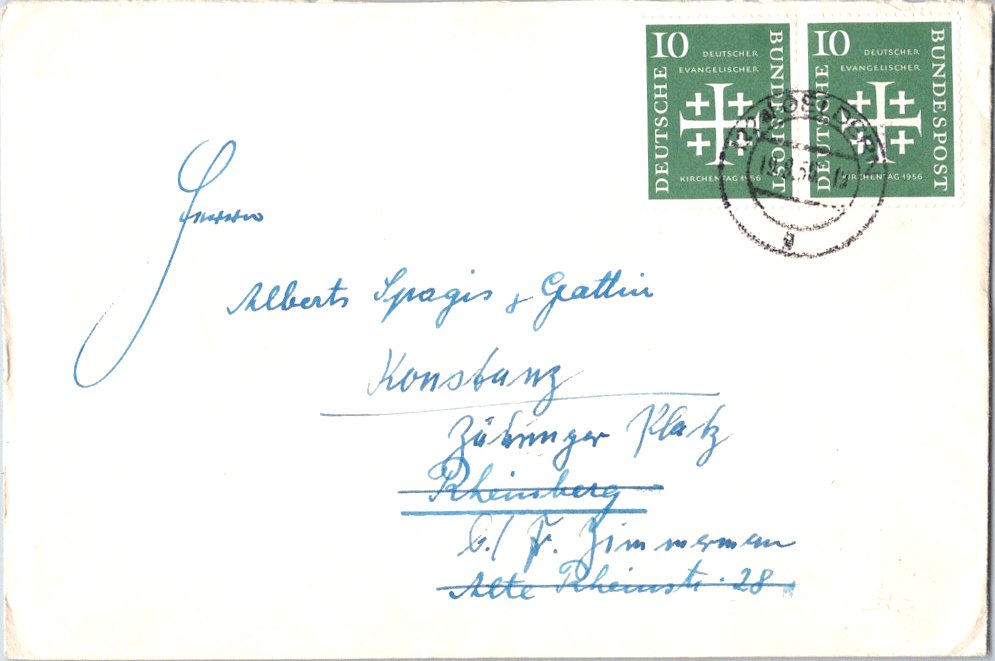 10 DEUTSCHER
EVANGELISCHER
DEUTSCHE
BUNDESPOST
KIRCHENTAG 1956
10 DEUTSCHER
EVANGELISCHER
DEUTSCHE
BUNDESPOST
KIRCHENTAG 1956
GELDERN
a
Herrn
Alberts Spagis & Gattin
Konstanz
Zähringer Platz
Rheinberg
b./ F. Zimmerman
Alte Rheinstr. 28